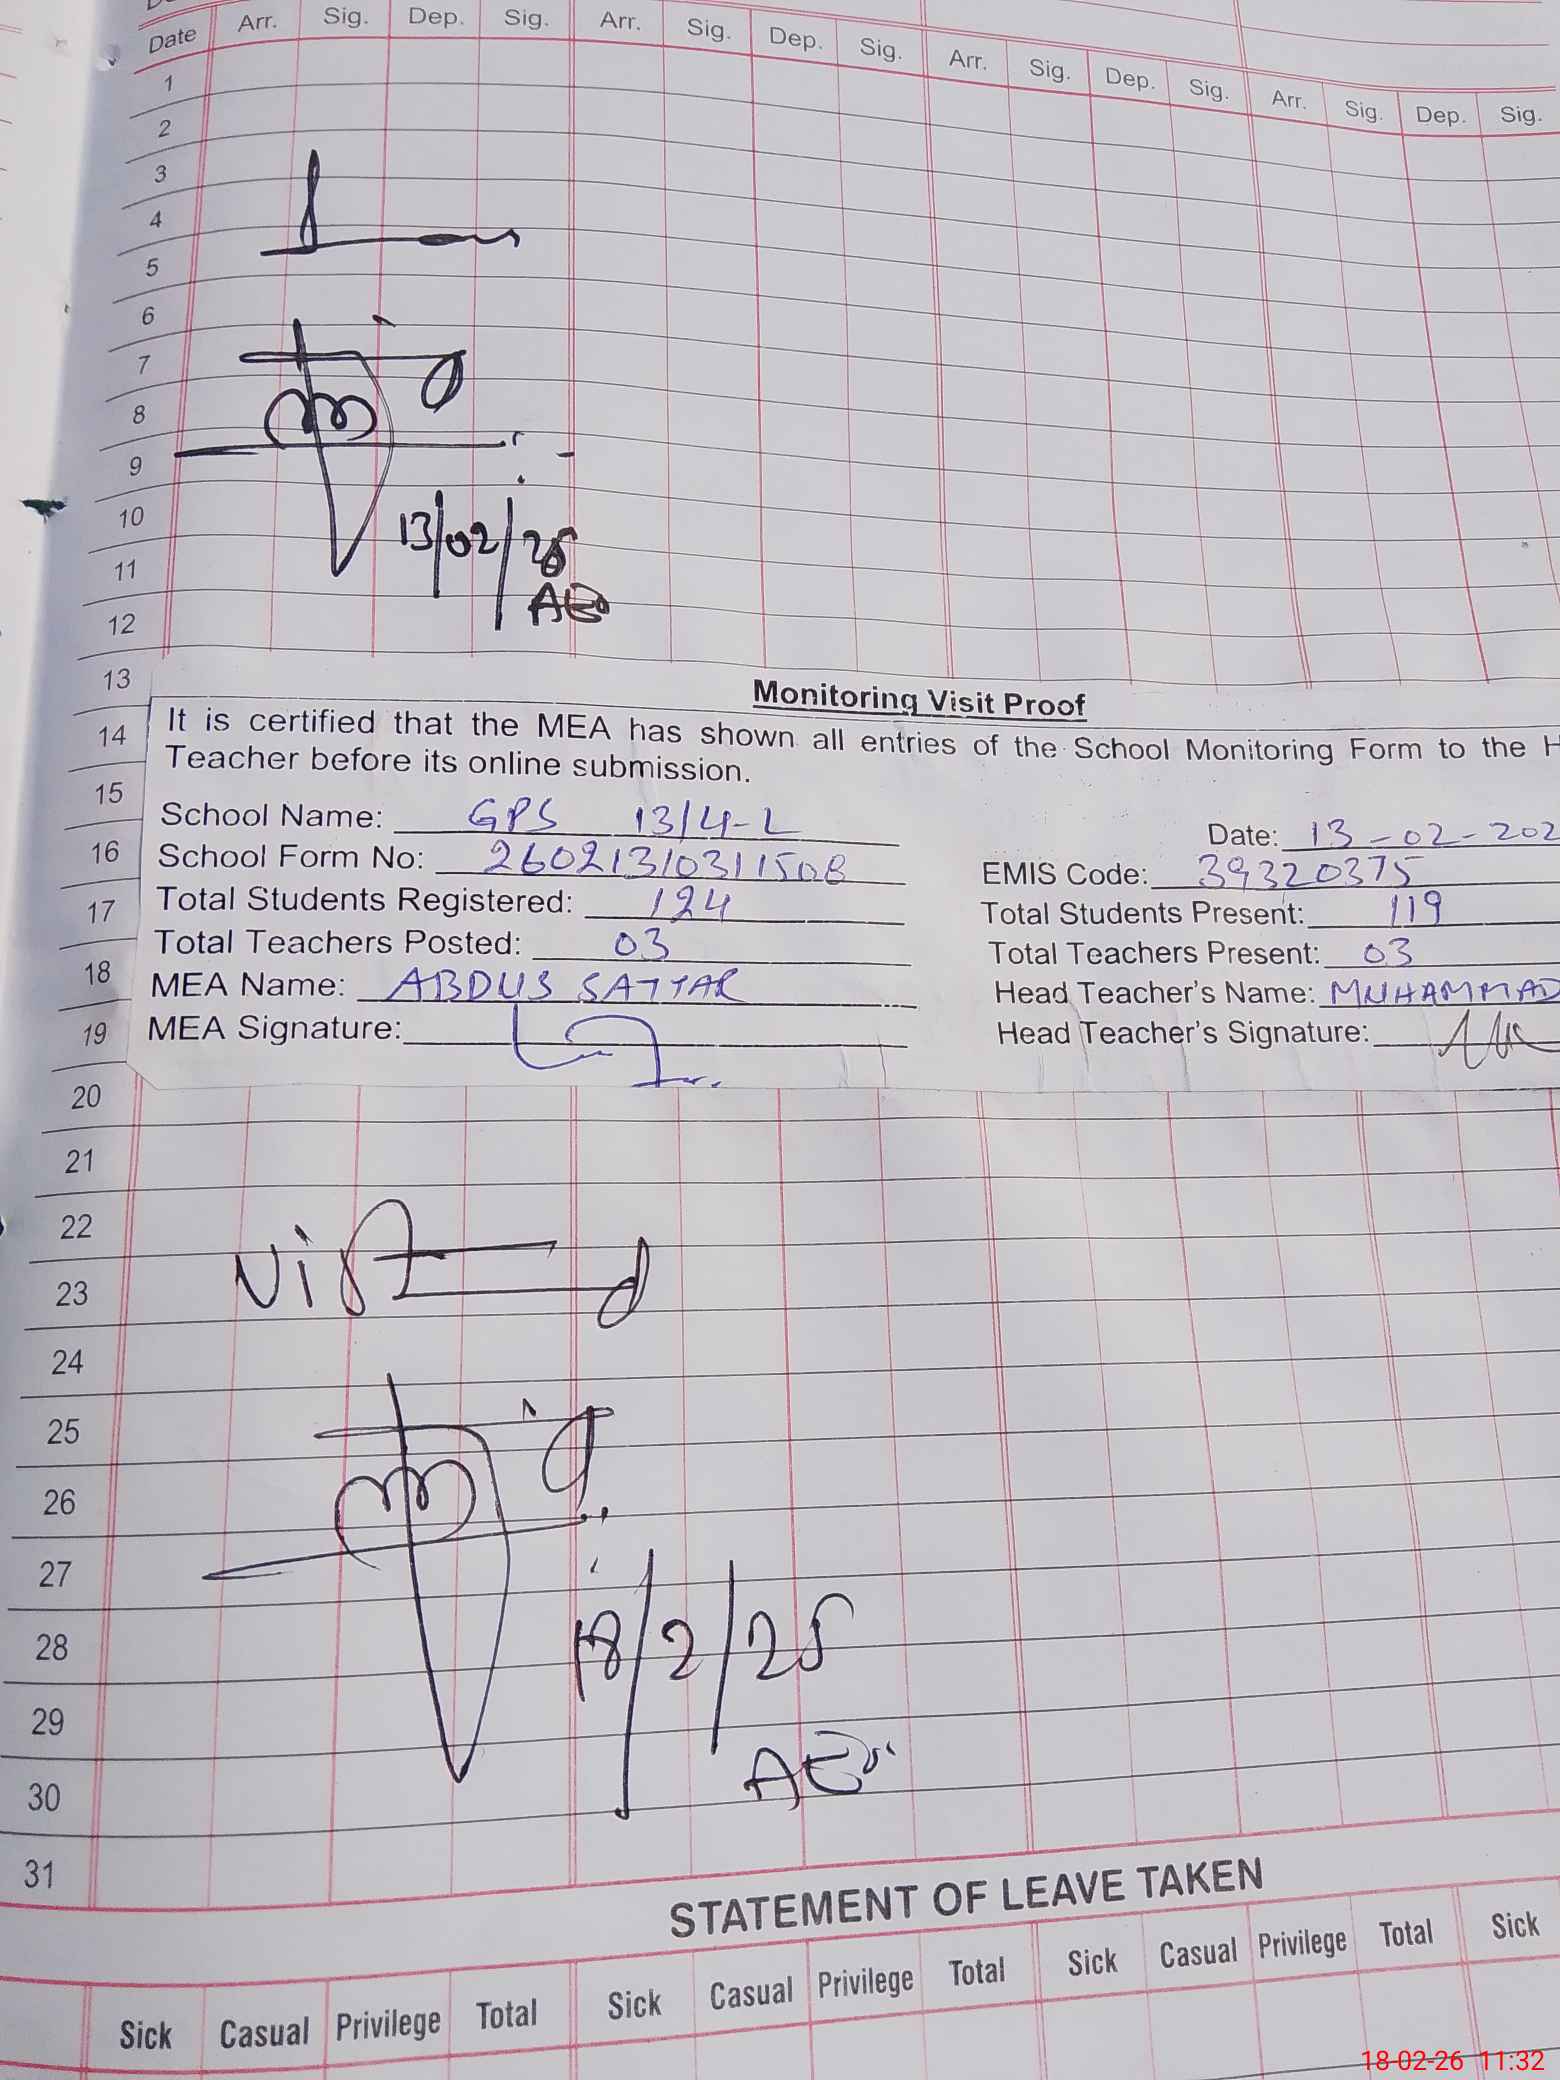 Date Arr. Sig. Dep. Sig. Arr. Sig. Dep. Sig. Arr. Sig. Dep. Sig. Arr. Sig. Dep. Sig.
1
2
3
4
5
6
7
8
9
10
13/02/25
11
AEO
12
13
Monitoring Visit Proof
14
It is certified that the MEA has shown all entries of the School Monitoring Form to the H
Teacher before its online submission.
15
School Name: GPS 13/4-L Date: 13-02-202
16
School Form No: 26021310311508 EMIS Code: 39320375
17
Total Students Registered: 124 Total Students Present: 119
Total Teachers Posted: 03 Total Teachers Present: 03
18
MEA Name: ABDUS SATTAR Head Teacher's Name: MUHAMMAD
19
MEA Signature: Head Teacher's Signature:
20
21
22
23
24
25
26
27
28
18/2/25
29
AEO
30
31
STATEMENT OF LEAVE TAKEN
Sick Casual Privilege Total Sick Casual Privilege Total Sick Casual Privilege Total Sick
18-02-26 11:32